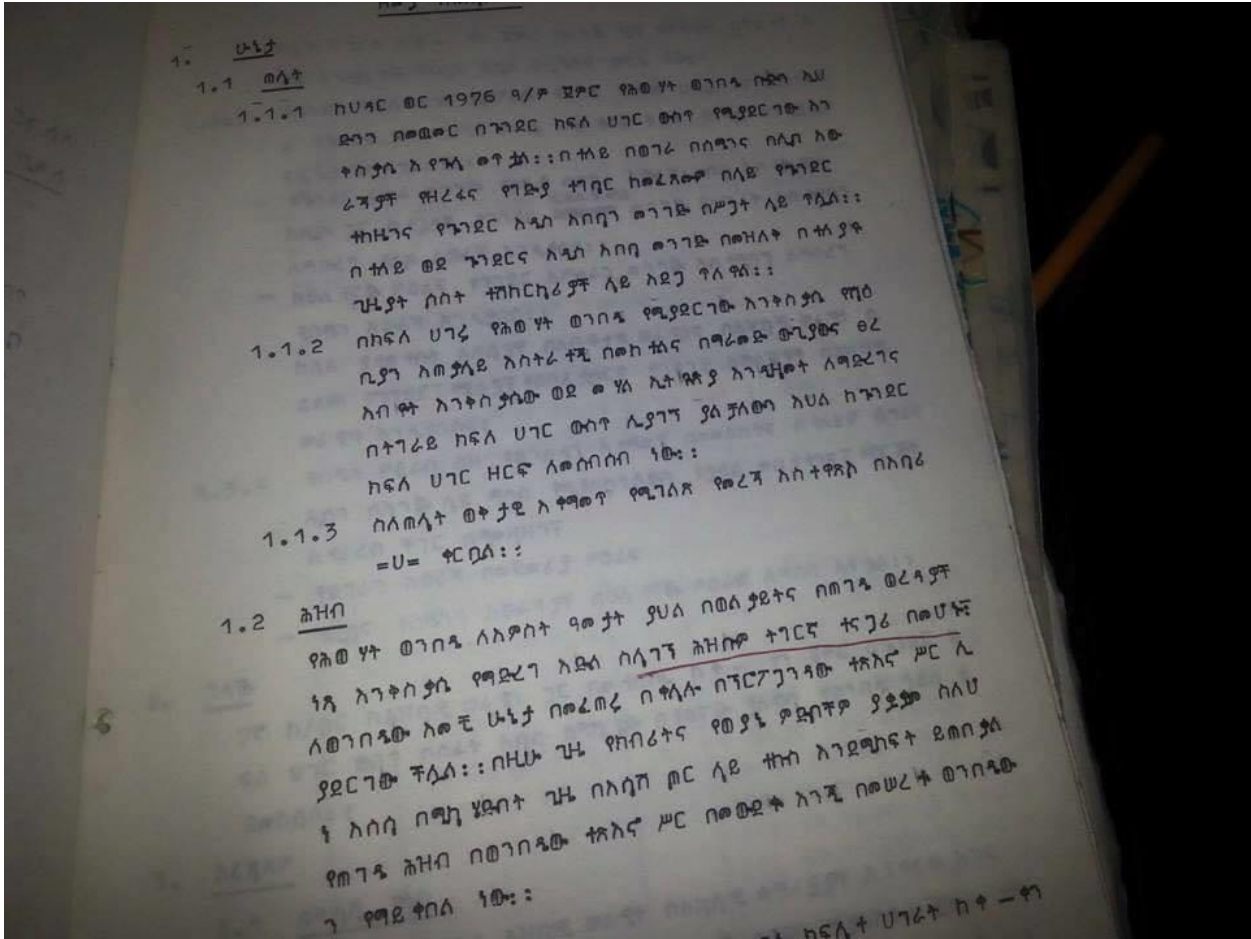 1. ሁኔታ
1.1 ጠላት
1.1.1 ከህዳር ወር 1976 ዓ/ም ጀምሮ የሕወሃት ወንበዴ ቡድን አህ
ድኑን በመጨመር በጎንደር ክፍለ ሀገር ውስጥ የሚያደርገው እን
ቅስቃሴ እየጎላ መጥቷል፡፡በተለይ በወገራ በሰሜንና በሊቦ አው
ራጃዎች የዘረፋና የግድያ ተግባር ከመፈጸሙም በላይ የጎንደር
ተከዜንና የጎንደር አዲስ አበባን መንገድ በሥጋት ላይ ጥሏል፡፡
በተለይ ወደ ጎንደርና አዲስ አበባ መንገድ በመዝለቅ በተለያዩ
ጊዜያት ሶስት ተሽከርካሪዎች ላይ አደጋ ጥለዋል፡፡
1.1.2 በክፍለ ሀገሩ የሕወሃት ወንበዴ የሚያደርገው እንቅስቃሴ የሻዕ
ቢያን አጠቃላይ እስትራተጂ በመከተልና በማራመድ ውጊያውና ፀረ
አብዮት እንቅስቃሴው ወደ መሃል ኢትዮጵያ እንዲዛመት ለማድረግና
በትግራይ ክፍለ ሀገር ውስጥ ሊያገኝ ያልቻለውን እህል ከጎንደር
ክፍለ ሀገር ዘርፎ ለመሰብሰብ ነው፡፡
1.1.3 ስለጠላት ወቅታዊ አቀማመጥ የሚገልጽ የመረጃ አስተዋጽኦ በአባሪ
=ሀ= ቀርቧል፡፡
1.2 ሕዝብ
የሕወሃት ወንበዴ ለአምስት ዓመታት ያህል በወልቃይትና በጠገዴ ወረዳዎች
ነጻ እንቅስቃሴ የማድረግ እድል ስላገኘ ሕዝቡም ትግርኛ ተናጋሪ በመሆኑ፤
ለወንበዴው አመቺ ሁኔታ በመፈጠሩ በቀላሉ በፕሮፖጋንዳው ተጽእኖ ሥር ሊ
ያደርገው ችሏል፡፡በዚሁ ጊዜ የክብሪትና የወያኔ ምድቦችም ያቋቋም ስለሆ
ነ አሰሳ በሚካሄድበት ጊዜ በአሳሽ ጦር ላይ ተኩስ እንደሚከፍት ይጠበቃል
የጠገዴ ሕዝብ በወንበዴው ተጽእኖ ሥር በመውደቁ እንጂ በመሠረቱ ወንበዴው
ን የማይቀበል ነው፡፡
ክፍላተ ሀገራት